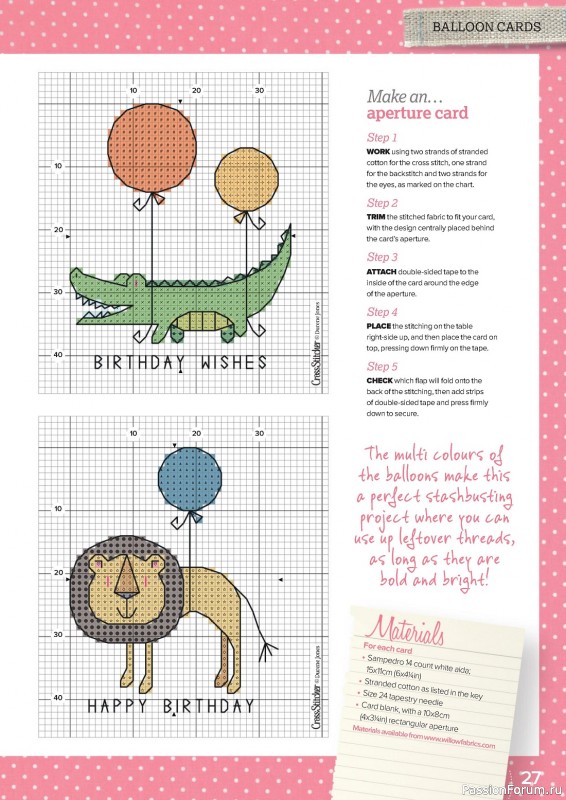 BALLOON CARDS
10 20 30
10
20
30
40
BIRTHDAY WISHES
CrossStitcher © Durene Jones
10 20 30
10
20
30
40
HAPPY BIRTHDAY
CrossStitcher © Durene Jones
Make an...
aperture card
Step 1
WORK using two strands of stranded
cotton for the cross stitch, one strand
for the backstitch and two strands for
the eyes, as marked on the chart.
Step 2
TRIM the stitched fabric to fit your card,
with the design centrally placed behind
the card's aperture.
Step 3
ATTACH double-sided tape to the
inside of the card around the edge
of the aperture.
Step 4
PLACE the stitching on the table
right-side up, and then place the card on
top, pressing down firmly on the tape.
Step 5
CHECK which flap will fold onto the
back of the stitching, then add strips
of double-sided tape and press firmly
down to secure.
The multi colours of
the balloons make this
a perfect stashbusting
project where you can
use up leftover threads,
as long as they are
bold and bright!
Materials
For each card
• Sampedro 14 count white aida;
15x11cm (6x4¼in)
• Stranded cotton as listed in the key
• Size 24 tapestry needle
• Card blank, with a 10x8cm
(4x3¼in) rectangular aperture
Materials available from www.willowfabrics.com
27
PassionForum.ru